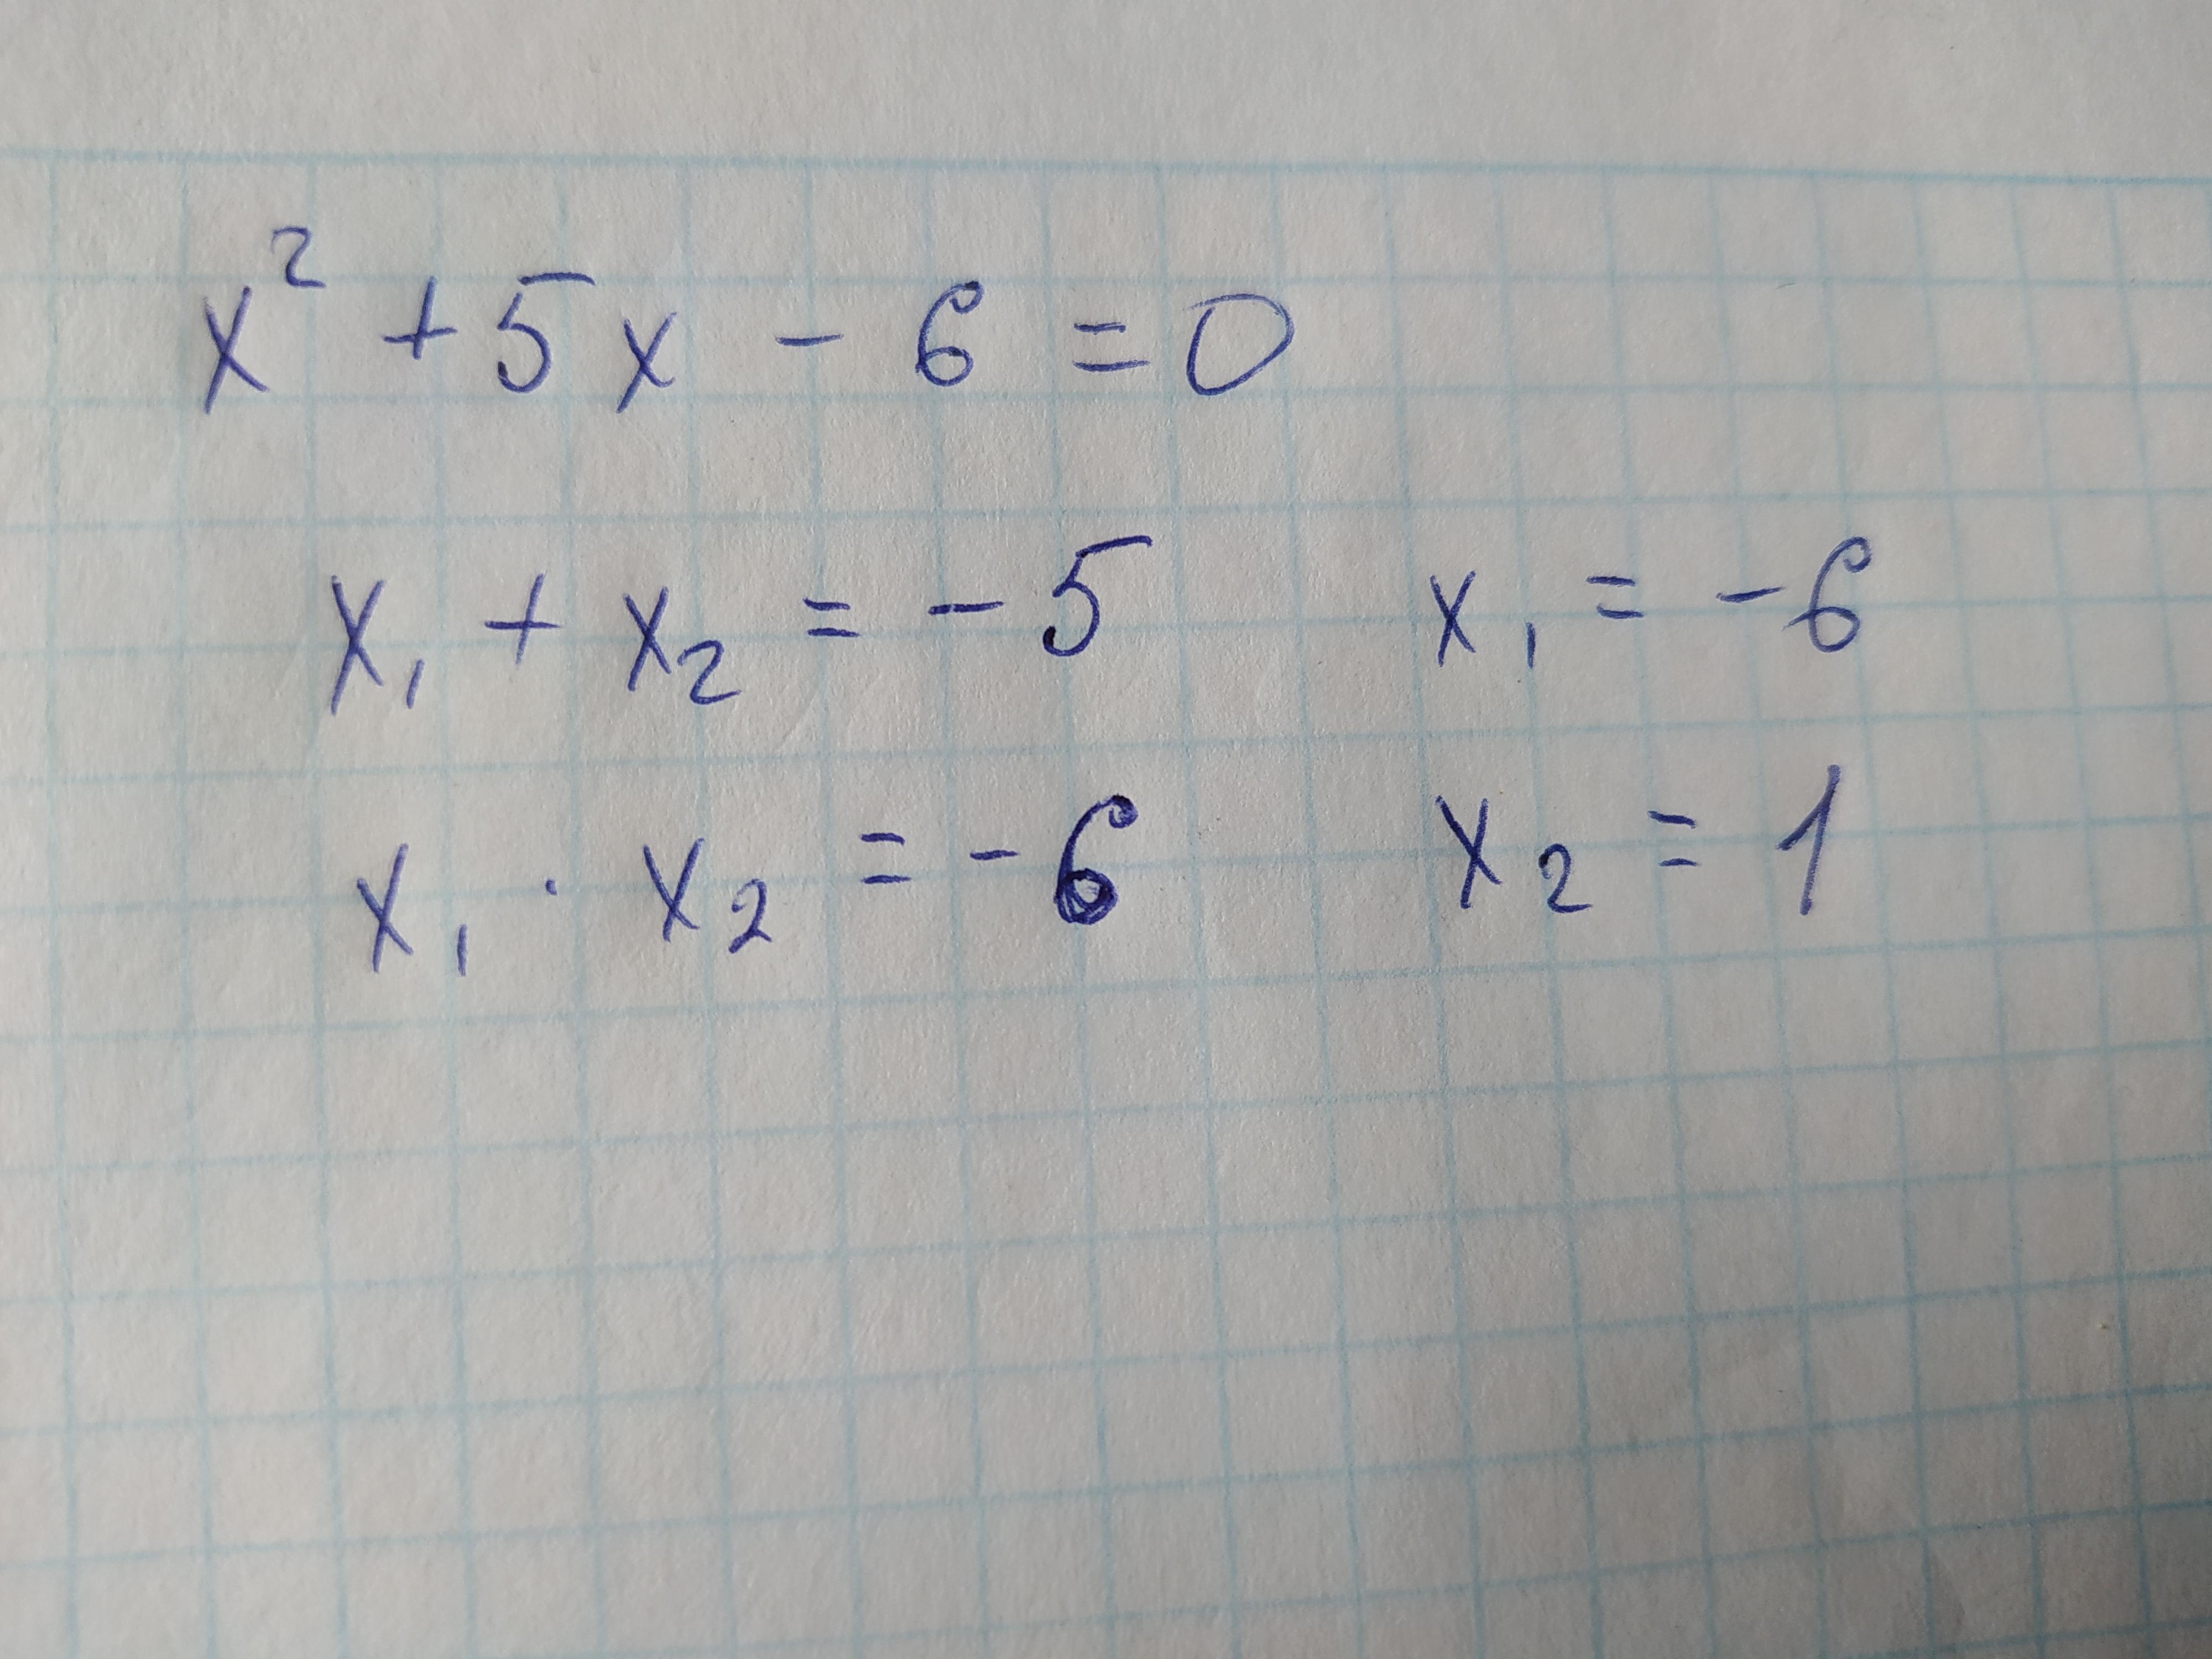 x² + 5x - 6 = 0
x₁ + x₂ = -5 x₁ = -6
x₁ · x₂ = -6 x₂ = 1